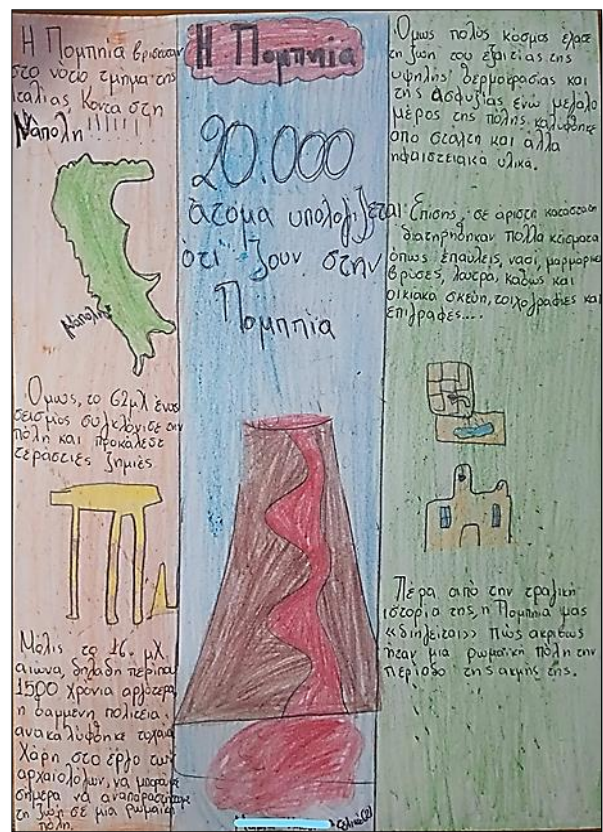 Η Πομπηία βρισκόταν
στο νότιο τμήμα της
Ιταλίας, Κοντα στη
Νάπολη!!!!!!
Νάπολη
Όμως, το 62μΧ ένας
σεισμός συγκλόνισε την
πόλη και προκάλεσε
τεράστιες ζημιές
Μόλις το 16. μΧ
αιώνα, δηλαδή περίπου
1500 χρόνια αργότερα,
η θαμμένη πολιτεία
ανακαλύφθηκε τυχαία
Χάρη στο έργο των
αρχαιολόγων, να μπορούμε
σήμερα να αναπαραστήσουμε
τη ζωή σε μια ρωμαϊκή
πόλη.
Η Πομπηία
20.000
άτομα υπολογίζεται
ότι ζουν στην
Πομπηία
Όμως πολύς κόσμος έχασε
τη ζωή του εξαιτίας της
υψηλής θερμοκρασίας και
της ασφυξίας, ενώ μεγάλο
μέρος της πόλης καλύφθηκε
από στάχτη και άλλα
ηφαιστειακά υλικά.
Επίσης, σε άριστη κατάσταση
διατηρήθηκαν πολλά κτίσματα
όπως επαύλεις, ναοί, μαρμάρινες
βρύσες, λουτρά, καθώς και
οικιακά σκεύη, τοιχογραφίες και
επιγραφές....
Πέρα από την τραγική
ιστορία της, η Πομπηία μας
«διηγείται» πώς ακριβώς
ήταν μια ρωμαϊκή πόλη την
περίοδο της ακμής της.